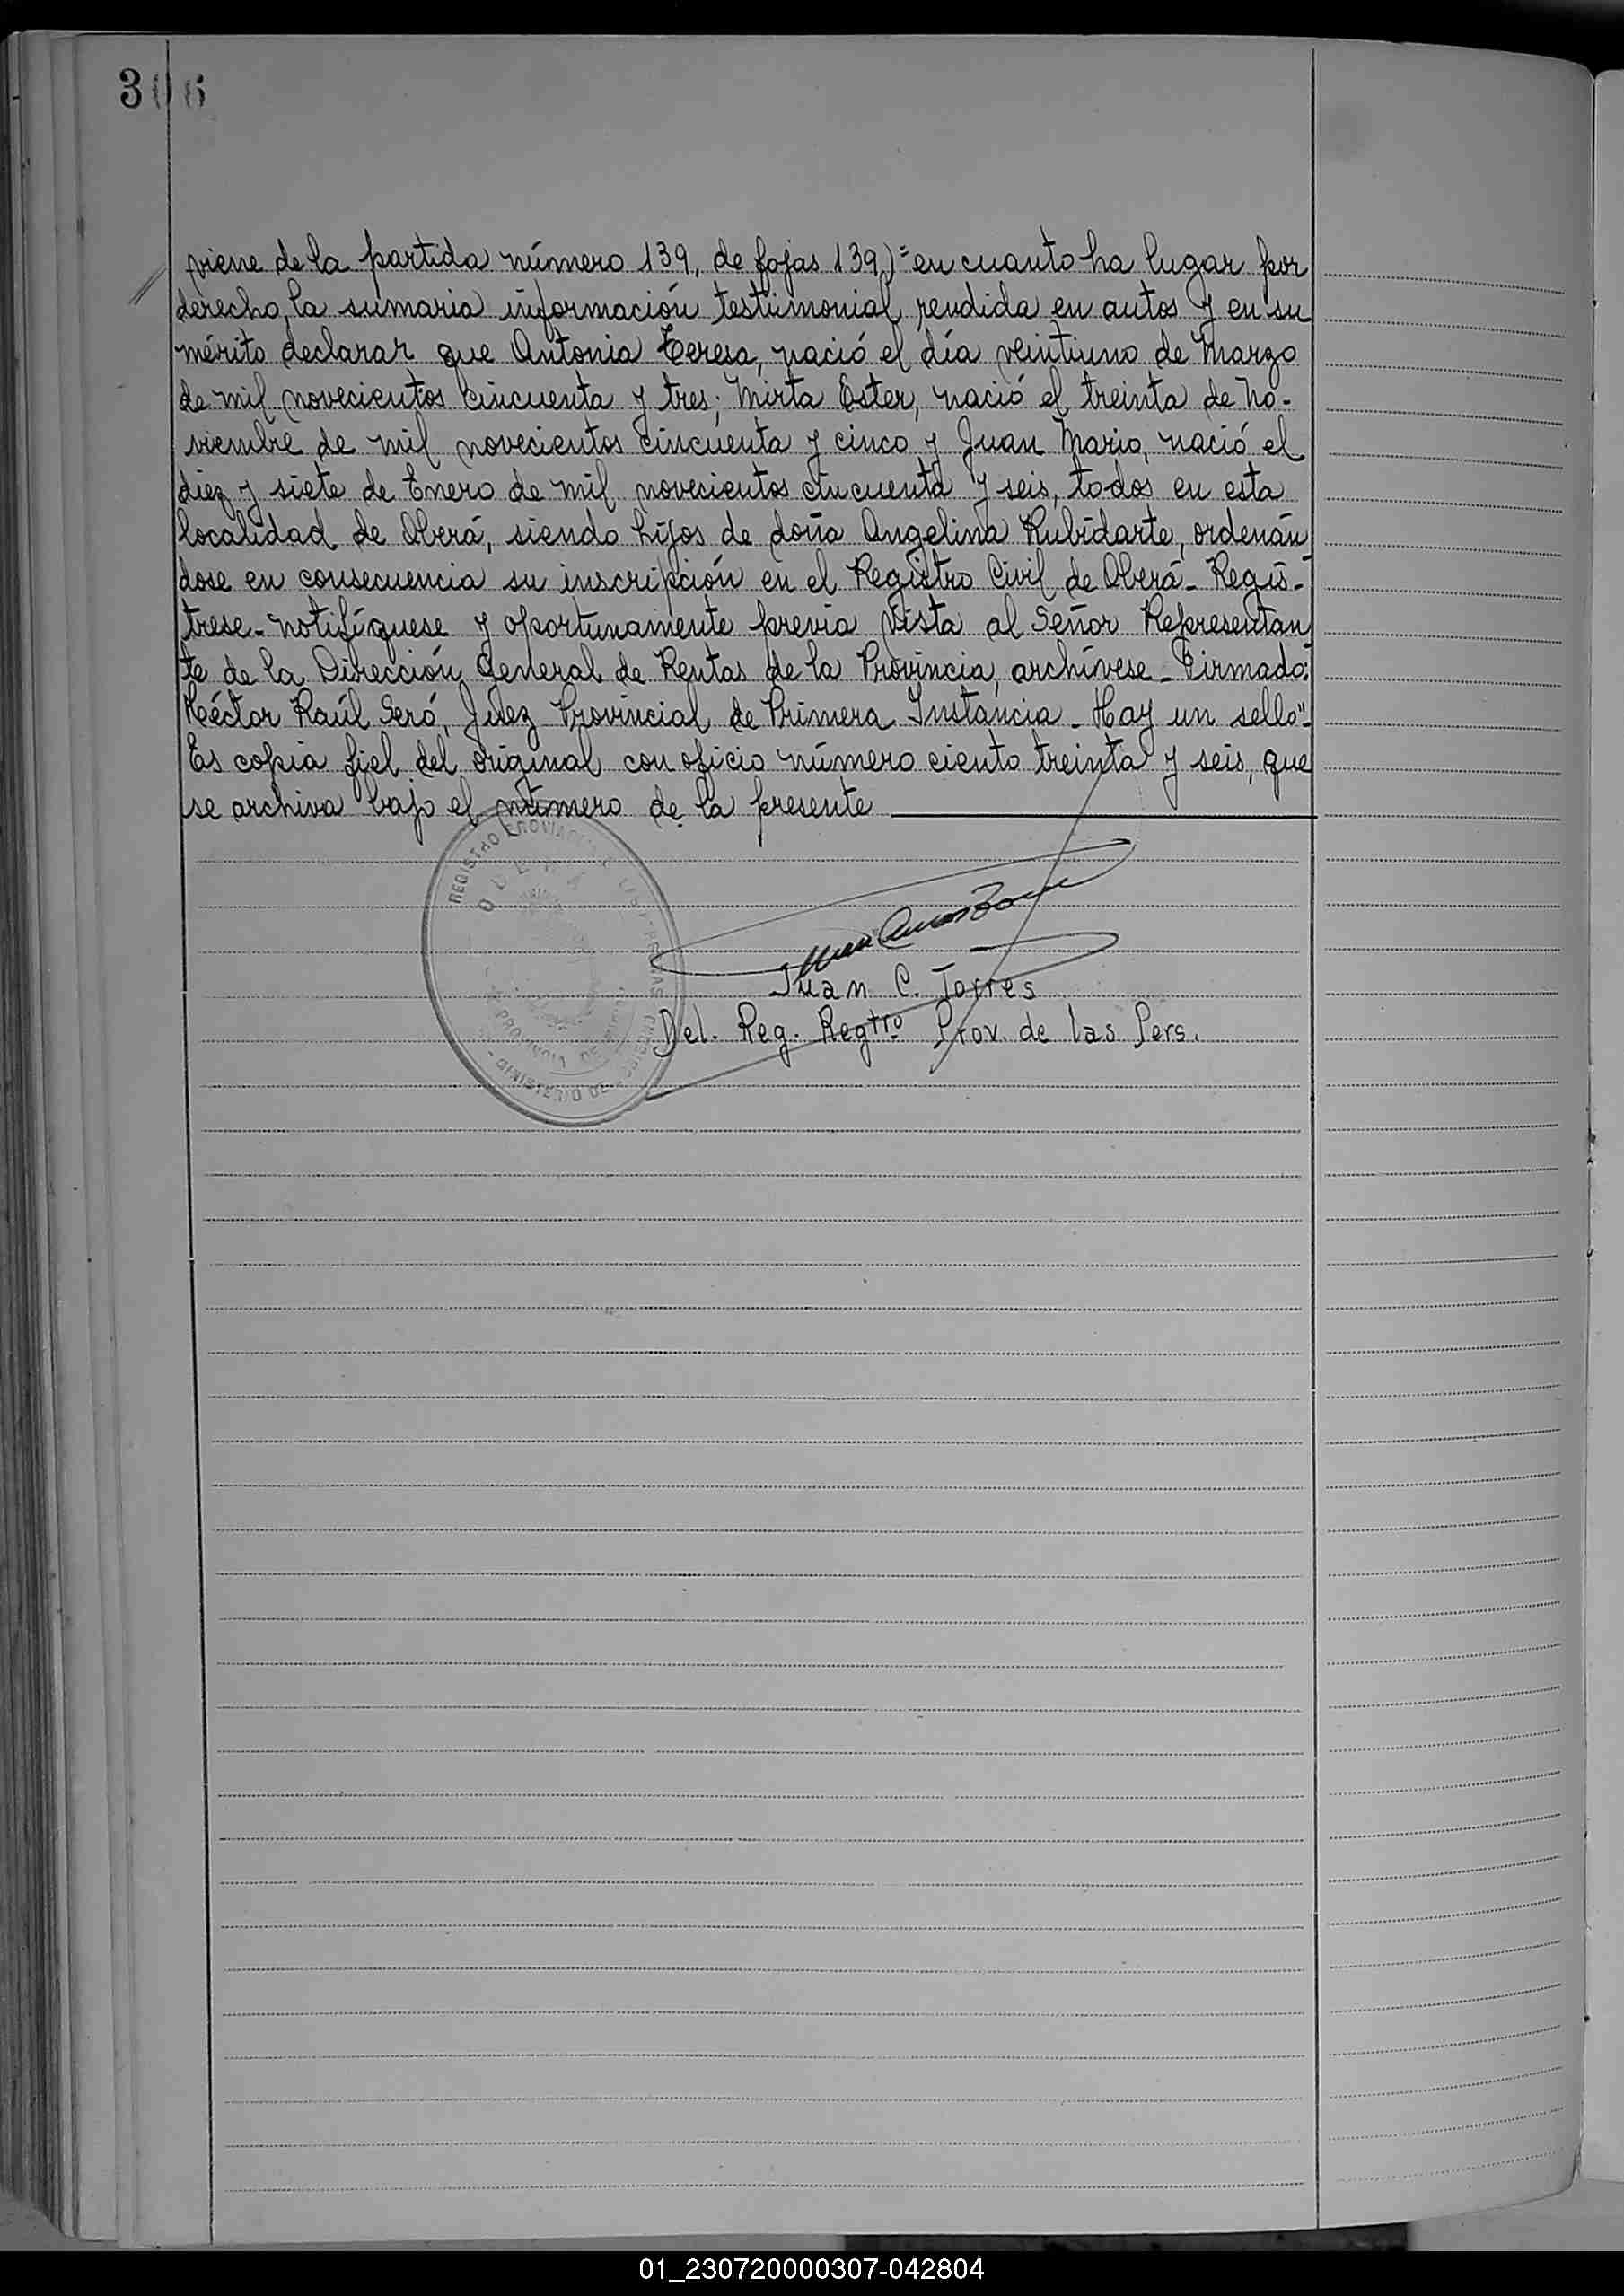 306
viene de la partida número 139, de fojas 139)= en cuanto ha lugar por
derecho, la sumaria información testimonial rendida en autos y en su
mérito declarar que Antonia Teresa, nació el día veintiuno de Marzo
de mil novecientos cincuenta y tres; Mirta Ester, nació el treinta de No-
viembre de mil novecientos cincuenta y cinco y Juan Mario, nació el
diez y siete de Enero de mil novecientos cincuenta y seis, todos en esta
localidad de Oberá, siendo hijos de doña Angelina Rubidarte, ordenán
dose en consecuencia su inscripción en el Registro Civil de Oberá - Regis-
trese - notifíquese y oportunamente previa vista al Señor Representan
te de la Dirección General de Rentas de la Provincia, archívese - Firmado:
Héctor Raúl Seró, Juez Provincial de Primera Instancia - Hay un sello"-
Es copia fiel del original con oficio número ciento treinta y seis, que
se archiva bajo el número de la presente
REGISTRO
OBERA
PROVINCIA DE
MINISTERIO DE
Juan C. Torres
Del. Reg. Regtro Prov. de las Pers.
01_230720000307-042804